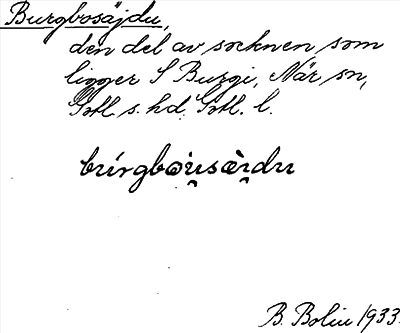 Burgbosäjdu,
den del av socknen som
ligger S Burgi, När sn,
Gotl s. hd. Gotl. l.
búrgbǝu̯sæ̀i̯du
B. Bolin 1933.